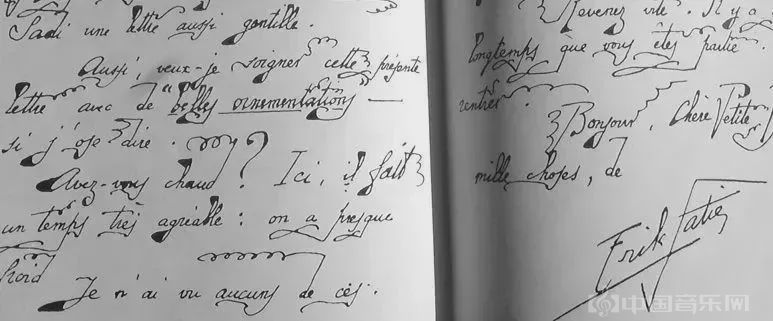 Sadi une lettre aussi gentille.
Aussi, veux-je soigner cette présente
lettre avec de "belles ornementations" —
si j'ose dire.
Avez-vous chaud? Ici, il fait
un temps très agréable : on a presque
froid
Je n'ai vu aucuns de ces.
Revenez vite. Il y a
longtemps que vous êtes partie.
rentrer.
Bonjour, Chère Petite
mille choses, de
Erik Satie
中国音乐网